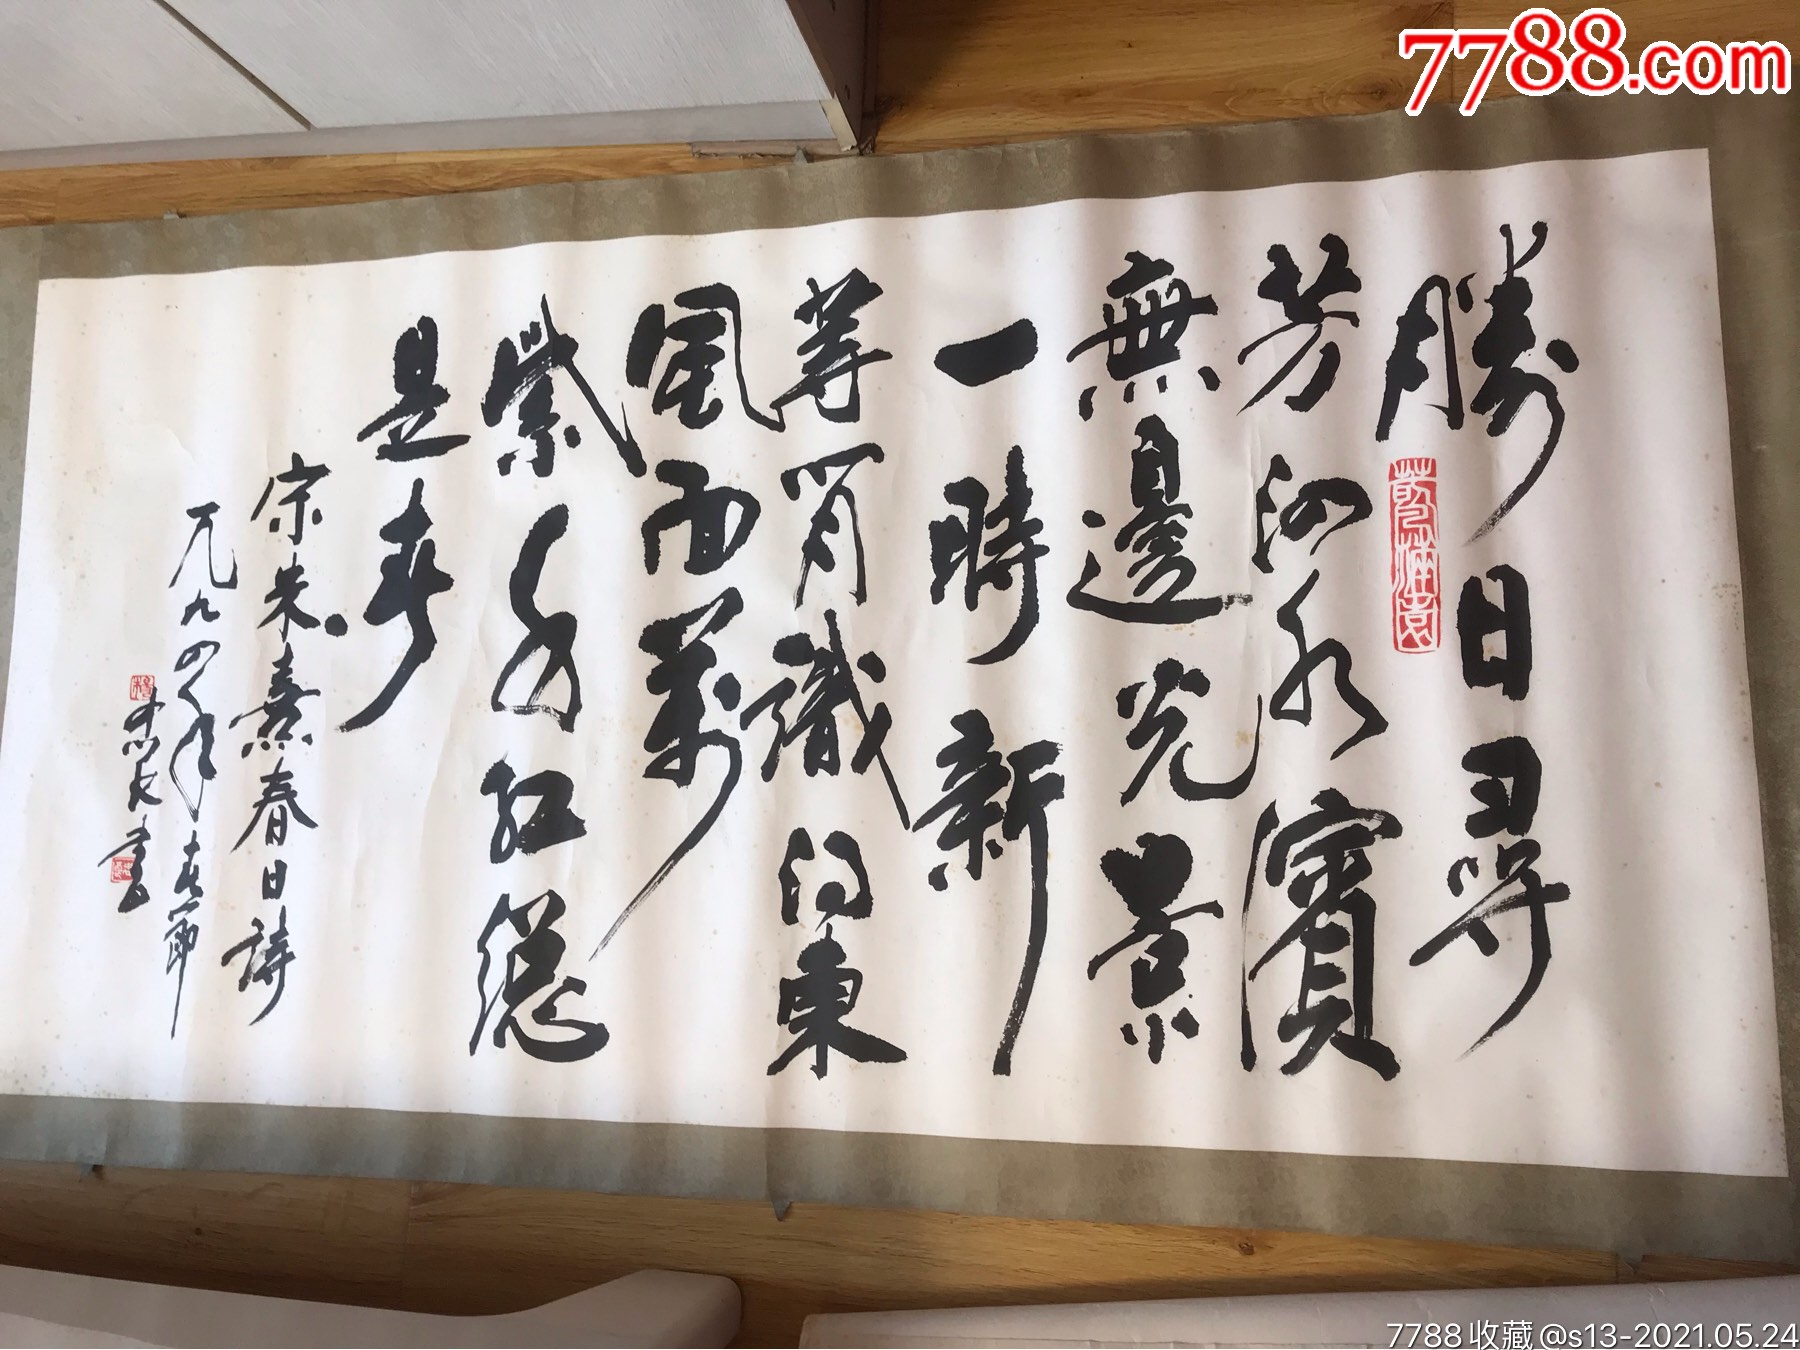 7788.com
勝日尋
芳泗水濱
無邊光景
一時新
等閒識得東
風面萬
紫千紅總
是春
宋朱熹春日詩
一九九四年春節
忠 書
7788收藏@s13-2021.05.24